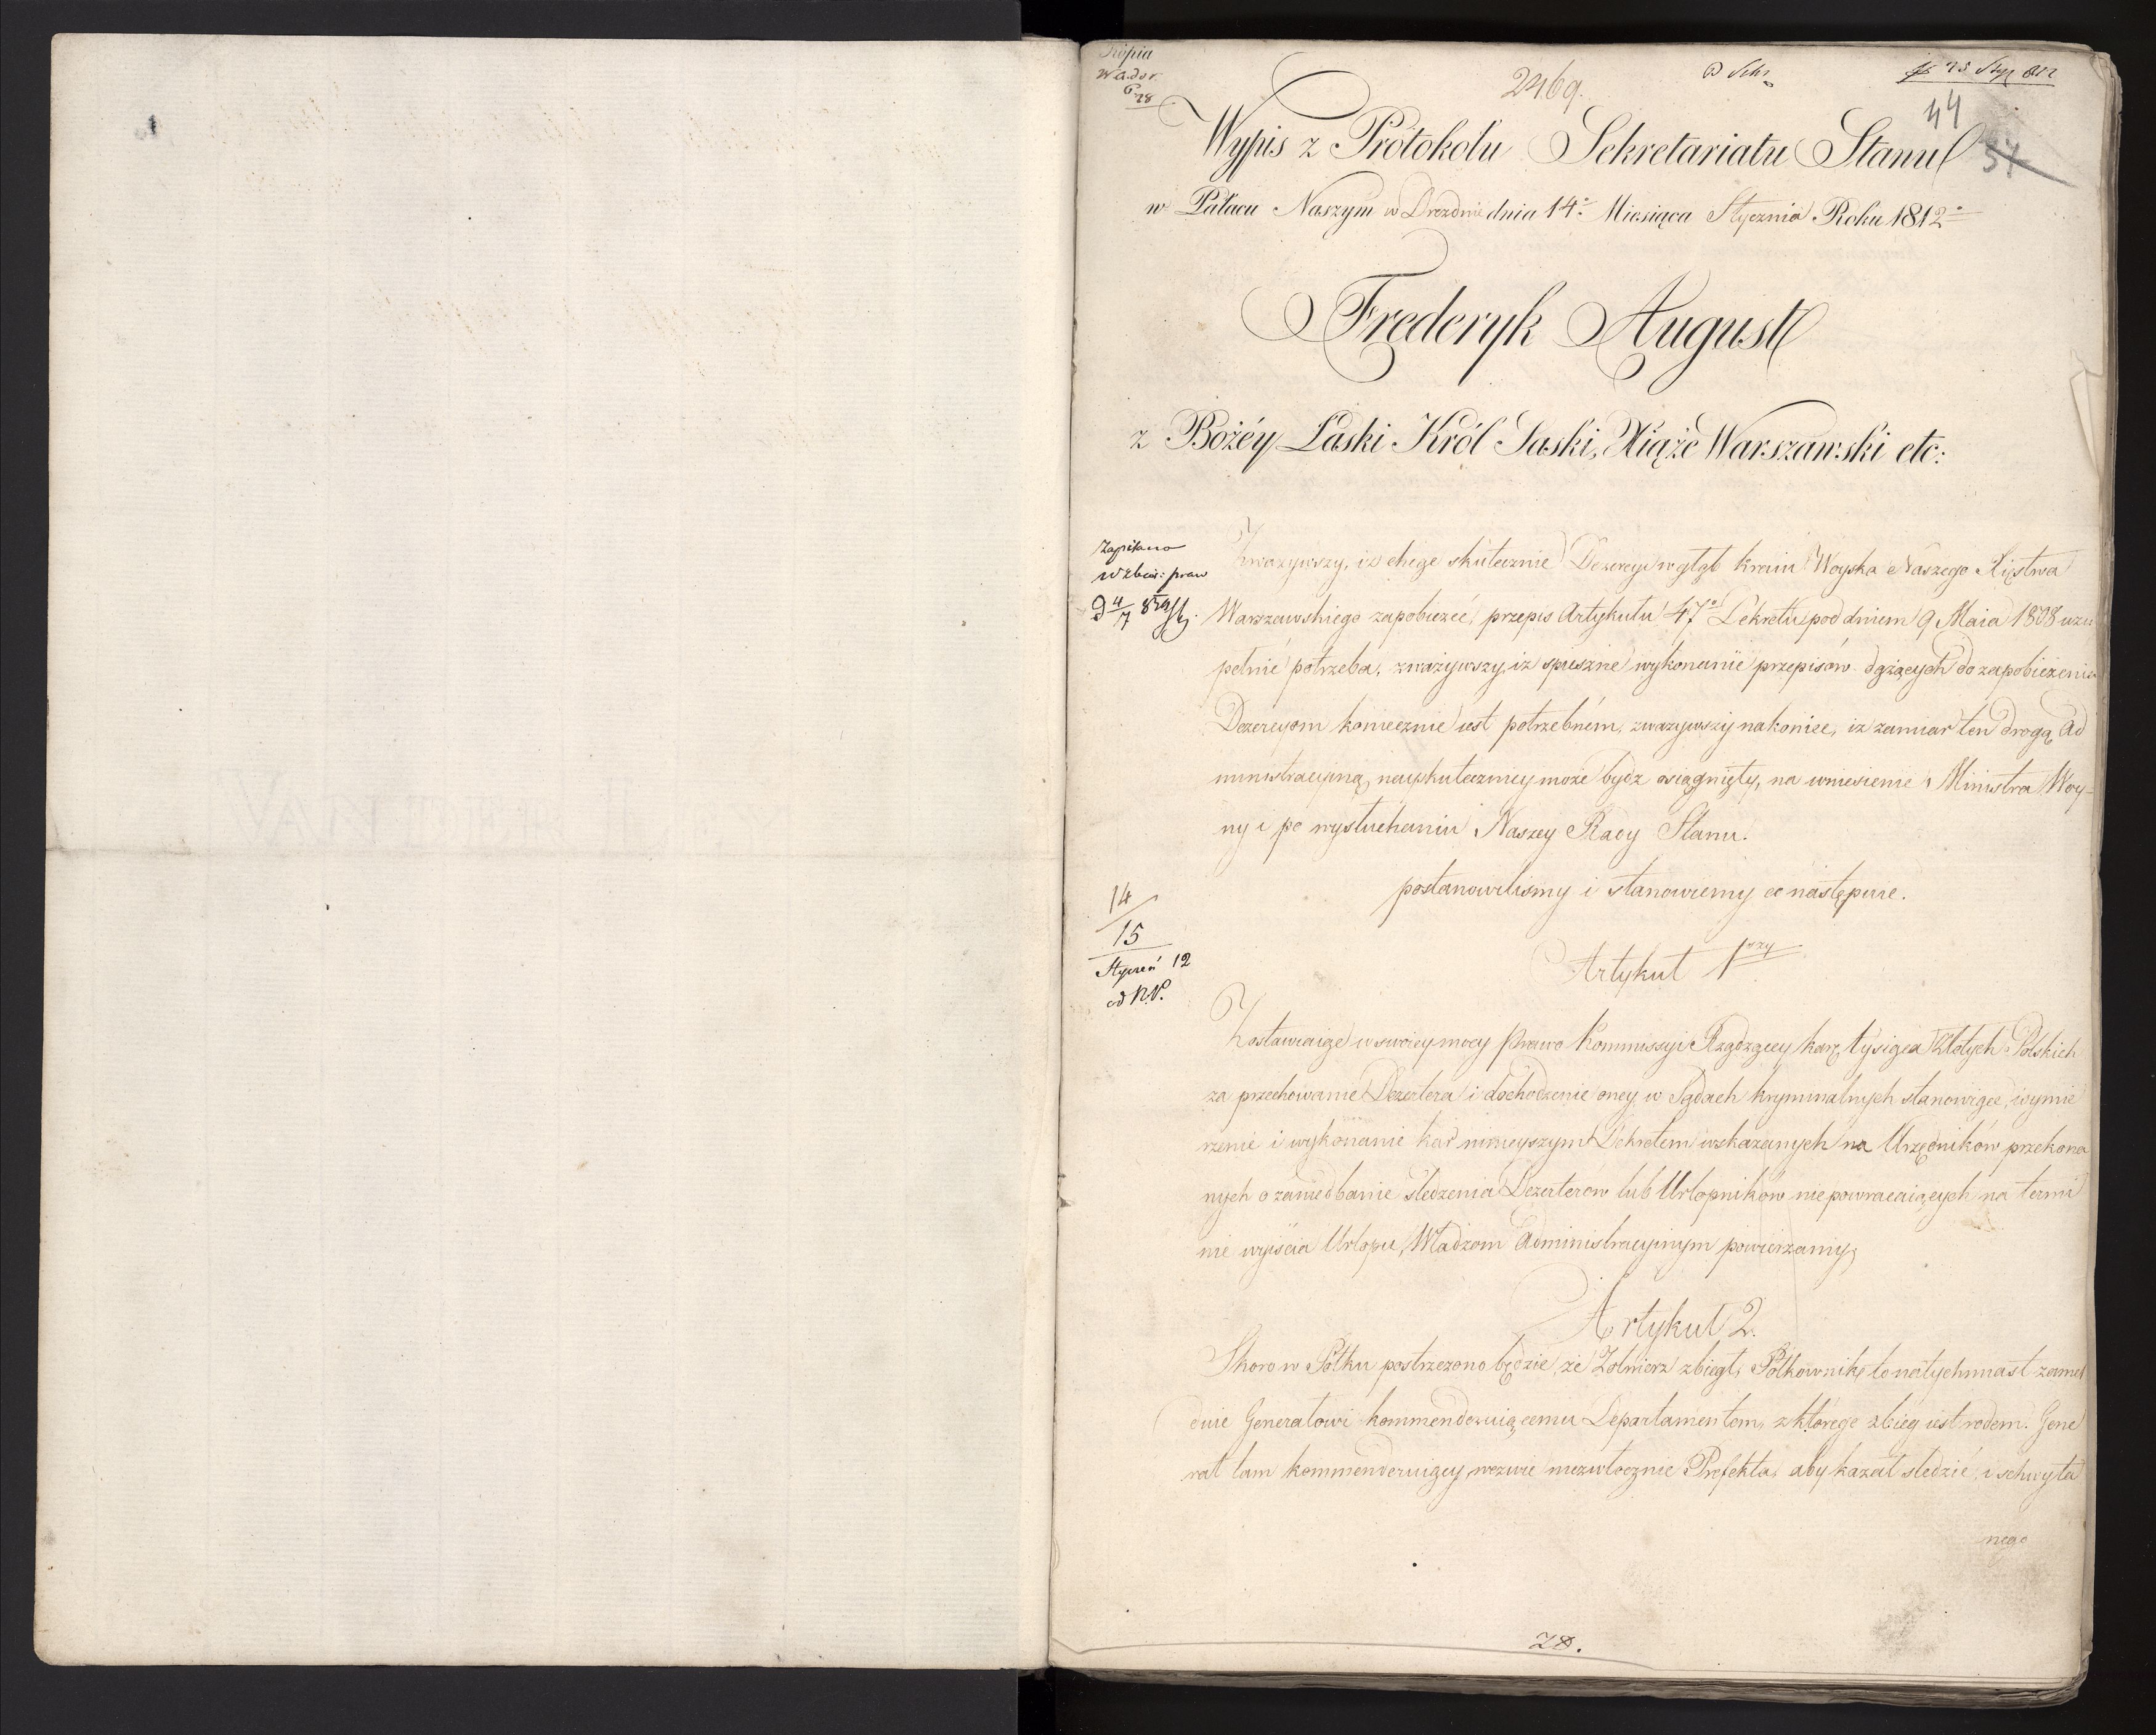 Kopia
2469.
44
37
Wypis z Protokołu Sekretariatu Stanu
w Pałacu Naszym w Dreźnie dnia 14º Miesiąca Stycznia Roku 1812º
Frederyk August
z Bożéy Łaski Król Saski, Xiąże Warszawski etc:
Zapisano
w zbior: praw
Zważywszy, iż chcąc skutecznie Dezercyi w głąb kraiu Woyska Naszego Xięstwa
Warszawskiego zapobieżeć, przepis Artykułu 47º Dekretu pod dniem 9 Maia 1808 uzu
pełnić potrzeba, zważywszy, iż spieszne wykonanie przepisów dążących do zapobieżenia
Dezercyom koniecznie iest potrzebném, zważywszy nakoniec, iż zamiar ten drogą Ad
ministracyiną nayskuteczniey może bydź osiągnięty, na wniesienie Ministra Woy-
ny i po wysłuchaniu Naszey Rady Stanu.
postanowiliśmy i stanowiemy co następuie.
14
15
Styczeń 12
od N.N.
Artykuł 1wszy
Zostawuiąc w swoiey mocy Prawo Kommissyi Rządzącey karę tysiąca Złotych Polskich
za przechowanie Dezertera i dochodzenie oney w Sądach kryminalnych stanowiące, wymie
rzenie i wykonanie kar ninieyszym Dekretem wskazanych na Urzędników przekona
nych o zaniedbanie śledzenia Dezerterów lub Urlopników niepowracaiących na termi
nie wyiścia Urlopu, Władzom Administracyinym powierzamy.
Artykuł 2.
Skoro w Półku postrzeżono będzie, że Żołnierz zbiegł, Półkownik to natychmiast zamel
duie Generałowi kommenderuiącemu Departamentem, z którego zbieg iest rodem. Gene
rał tam kommenderuiący wezwie niezwłocznie Prefekta, aby kazał śledzić, i schwyta
nego
28.